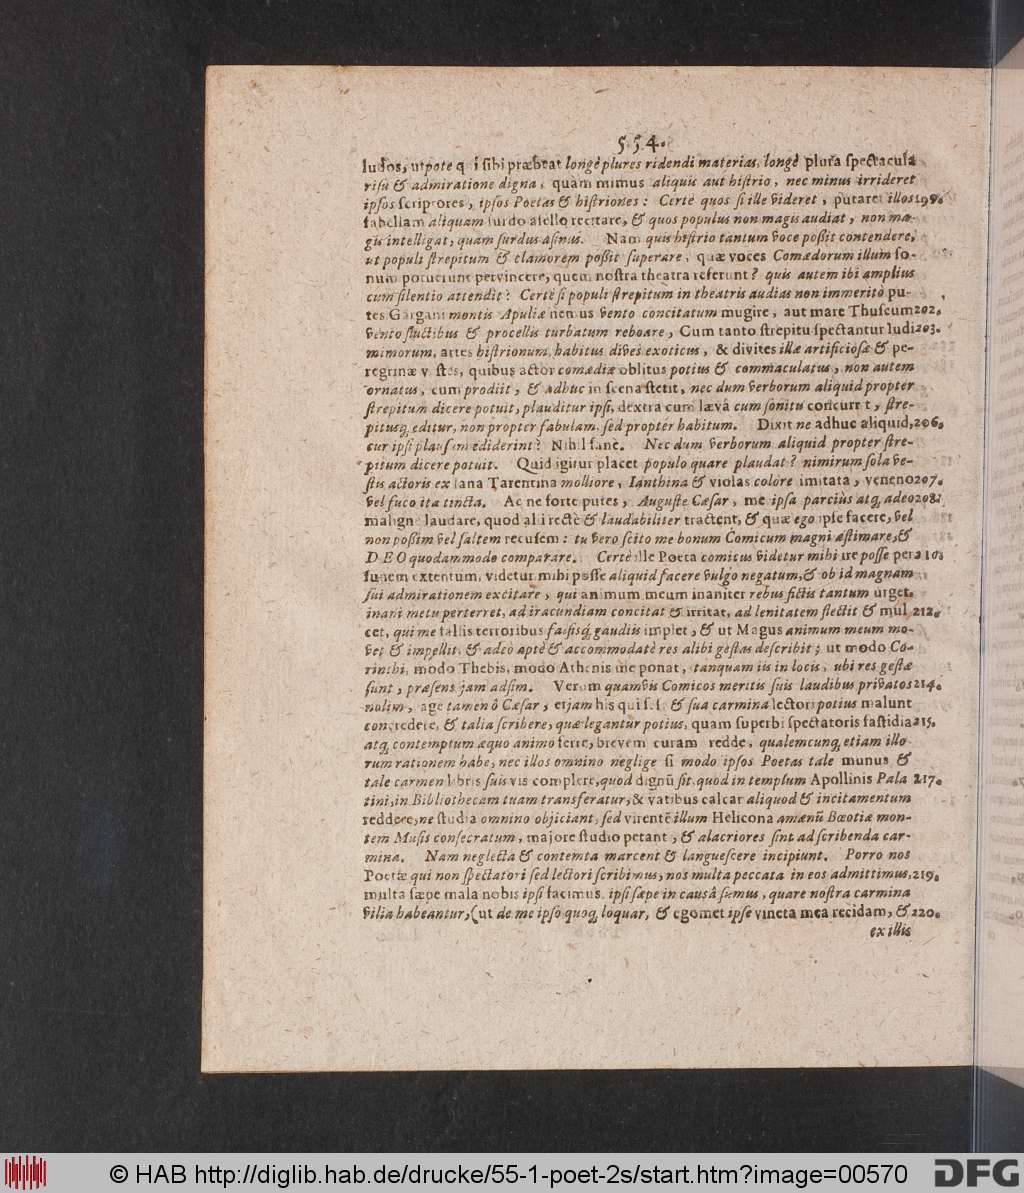 554.
ludos, utpote qui sibi præbeat longè plures ridendi materias, longè plura spectacula
risu & admiratione digna, quàm mimus aliquis aut histrio, nec minus irrideret
ipsos scriptores, ipsos Poetas & histriones: Certè quos si ille videret, putaret illos 199.
fabellam aliquam surdo asello recitare, & quos populus non magis audiat, non ma-
gis intelligat, quam surdus asinus. Nam quis histrio tantum voce possit contendere,
ut populi strepitum & clamorem possit superare, quæ voces Comœdorum illum so-
num potuerunt pervincere, quem nostra theatra referunt? quis autem ibi amplius
cum silentio attendit? Certè si populi strepitum in theatris audias non immeritò pu-
tes Gargani montis Apuliæ nemus vento concitatum mugire, aut mare Thuscum 202.
vento fluctibus & procellis turbatum reboare, Cum tanto strepitu spectantur ludi 203.
mimorum, artes histrionum, habitus dives exoticus, & divites illæ artificiosæ & pe-
regrinæ vestes, quibus actor comœdiæ oblitus potius & commaculatus, non autem
ornatus, cum prodiit, & adhuc in scena stetit, nec dum verborum aliquid propter
strepitum dicere potuit, plauditur ipsi, dextra cum lævâ cum sonitu concurrit, stre-
pitusq; editur, non propter fabulam, sed propter habitum. Dixit ne adhuc aliquid, 206.
cur ipsi plausum ediderint? Nihil sanè. Nec dum verborum aliquid propter stre-
pitum dicere potuit. Quid igitur placet populo quare plaudat? nimirum sola ve-
stis actoris ex lana Tarentina molliore, Ianthina & violas colore imitata, veneno 207.
vel fuco ita tincta. Ac ne forte putes, Auguste Cæsar, me ipsa parciùs atq; adeo 208.
malignè laudare, quod alii rectè & laudabiliter tractent, & quæ ego ipse facere, vel
non possim vel saltem recusem: tu vero scito me bonum Comicum magni æstimare, &
DEO quodammodo comparare. Certè ille Poeta comicus videtur mihi ire posse per 210.
funem extentum, videtur mihi posse aliquid facere vulgo negatum, & ob id magnam
sui admirationem excitare, qui animum meum inaniter rebus fictis tantum urget,
inani metu perterret, ad iracundiam concitat & irritat, ad lenitatem flectit & mul 212.
cet, qui me falsis terroribus falsisq; gaudiis implet, & ut Magus animum meum mo-
vet & impellit, & adeò aptè & accommodatè res alibi gestas describit; ut modo Co-
rinthi, modo Thebis, modo Athenis me ponat, tanquam iis in locis, ubi res gestæ
sunt, præsens jam adsim. Verum quamvis Comicos meritis suis laudibus privatos 214.
nolim, age tamen ô Cæsar, etjam his qui sese & sua carmina lectori potius malunt
concredere, & talia scribere, quæ legantur potius, quam superbi spectatoris fastidia 215.
atq; contemptum æquo animo ferre, brevem curam redde, qualemcunq; etiam illo-
rum rationem habe, nec illos omnino neglige si modo ipsos Poetas tale munus &
tale carmen libris suis vis complere, quod dignũ sit, quod in templum Apollinis Pala 217.
tini, in Bibliothecam tuam transferatur, & vatibus calcar aliquod & incitamentum
reddere, ne studia omnino objiciant, sed virentẽ illum Helicona amœnũ Bœotiæ mon-
tem Musis consecratum, majore studio petant, & alacriores sint ad scribenda car-
mina. Nam neglecta & contemta marcent & languescere incipiunt. Porro nos
Poetæ qui non spectatori sed lectori scribimus, nos multa peccata in eos admittimus, 219.
multa sæpe mala nobis ipsi facimus, ipsi sæpe in causâ sumus, quare nostra carmina
vilia habeantur, (ut de me ipso quoq; loquar, & egomet ipse vineta mea recidam, & 220.
ex illis
© HAB http://diglib.hab.de/drucke/55-1-poet-2s/start.htm?image=00570
DFG